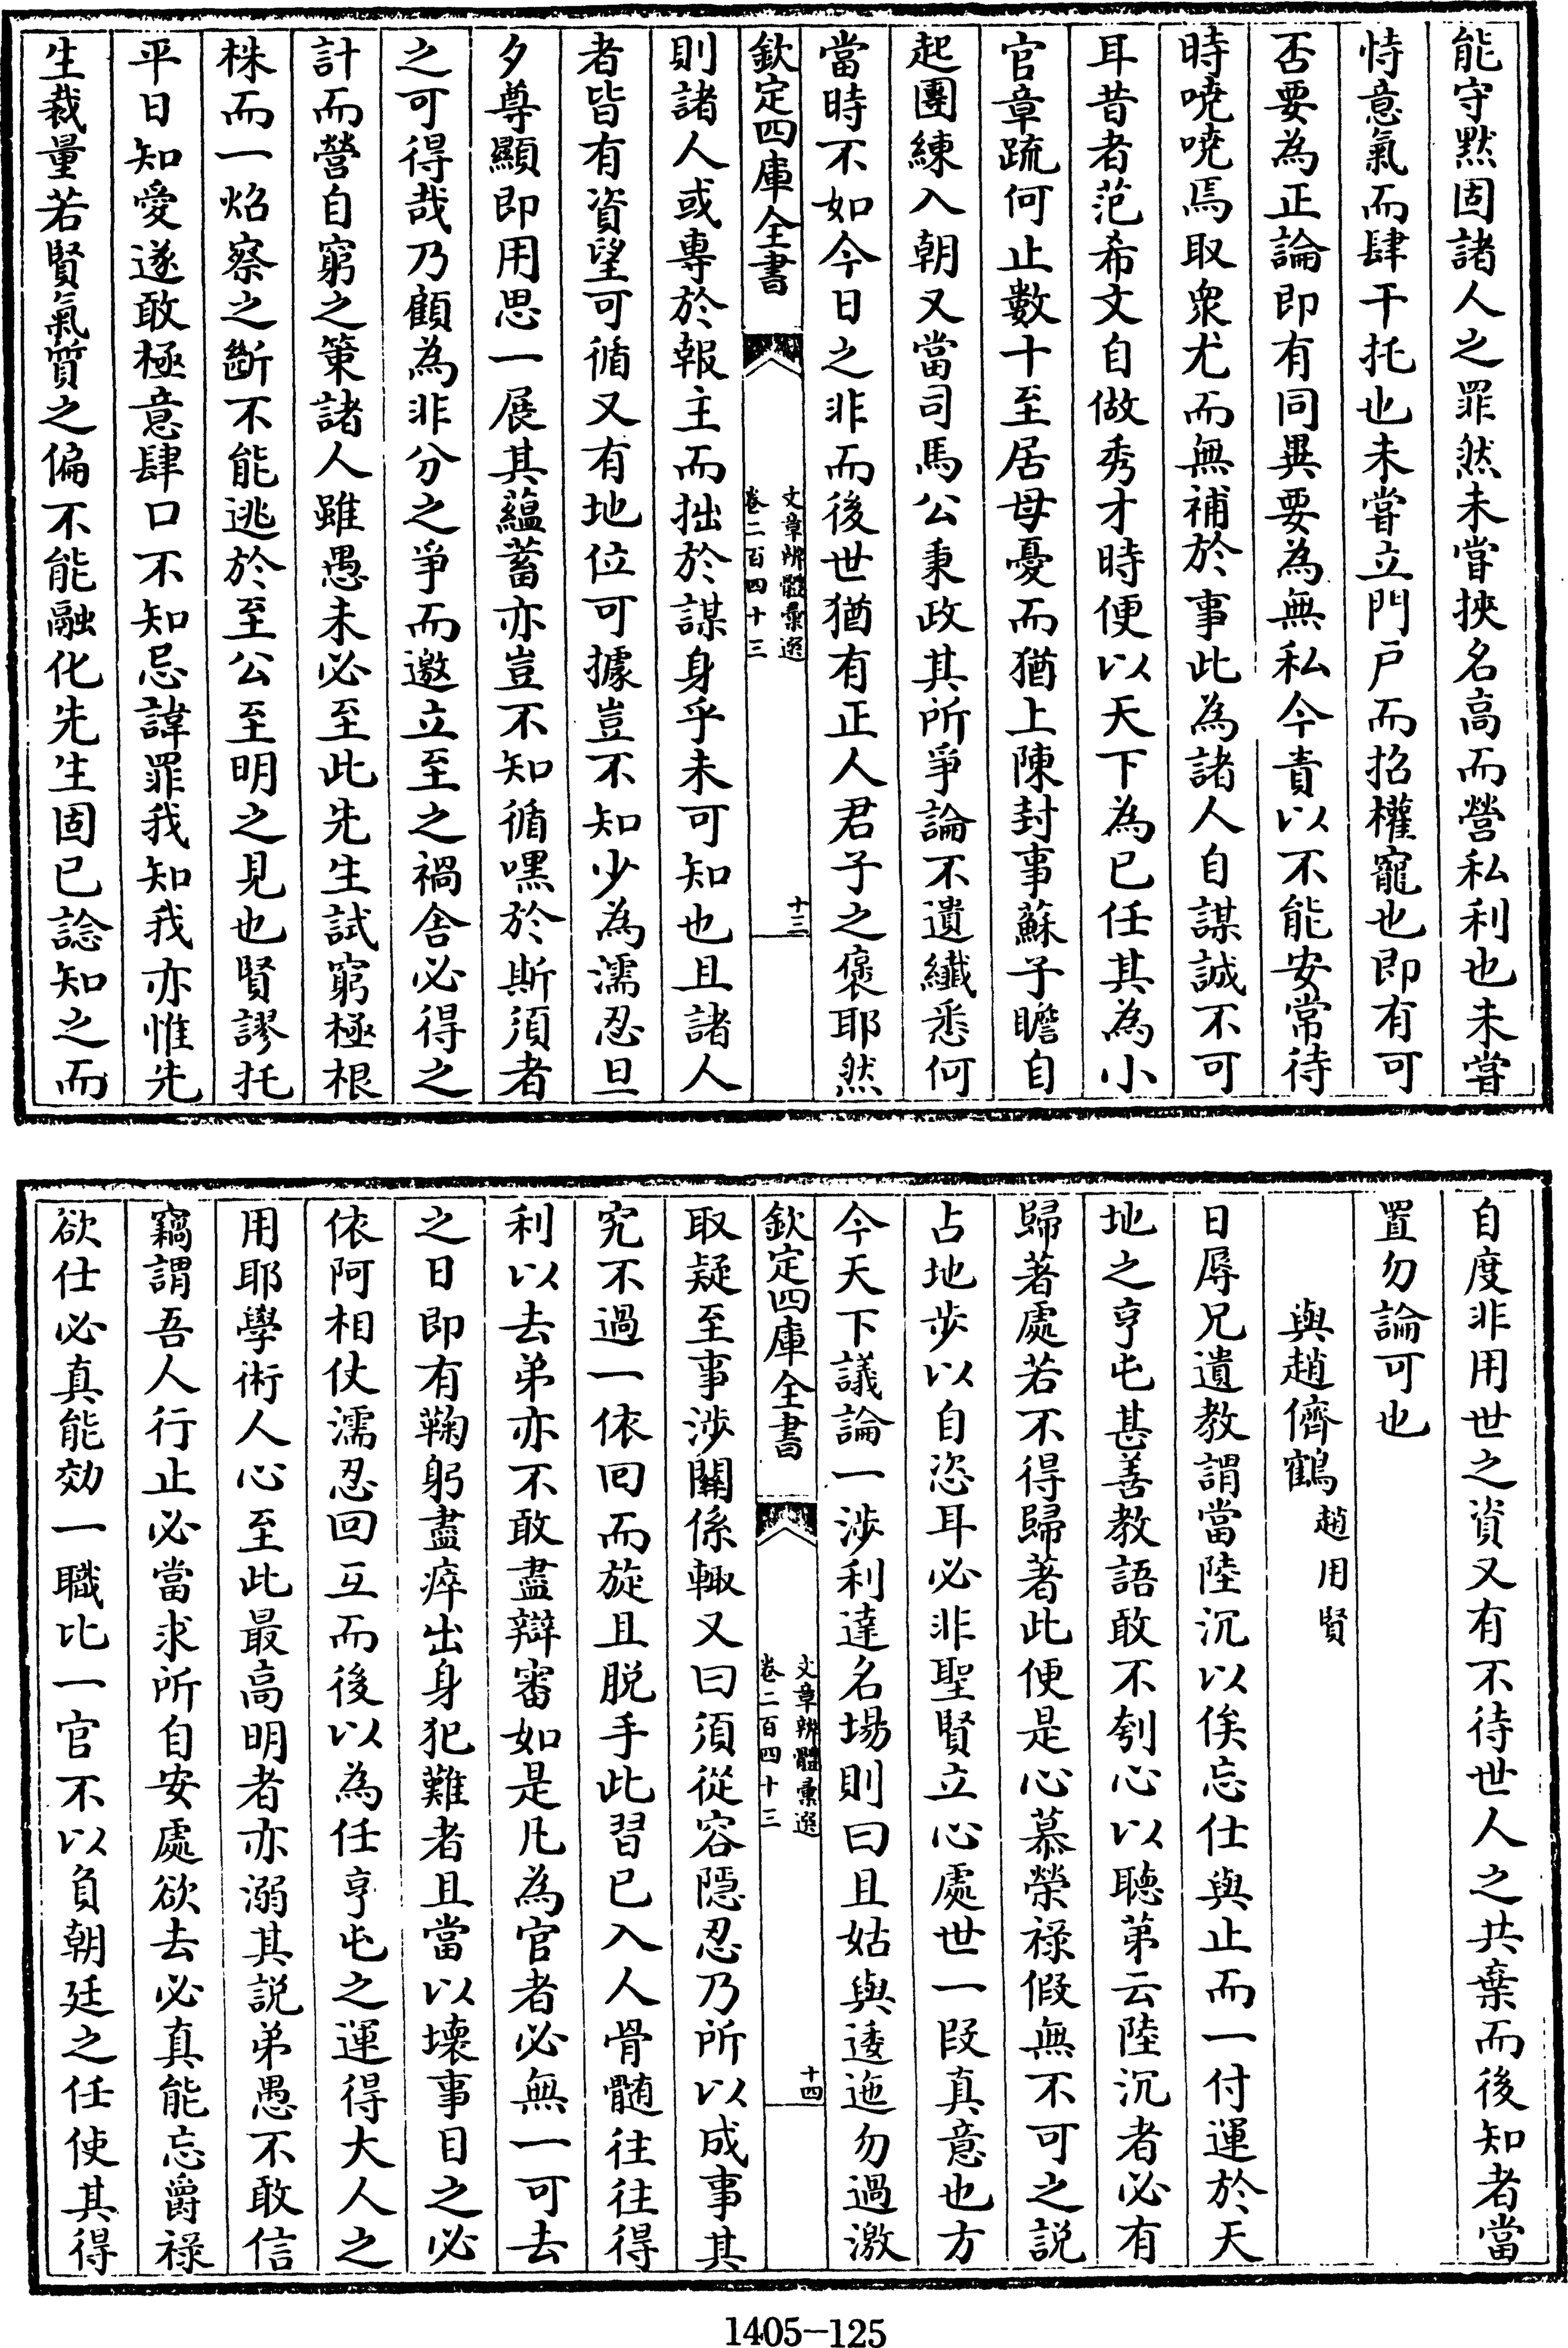 能守黙固諸人之罪然未嘗挾名高而營私利也未嘗
恃意氣而肆干托也未嘗立門戸而招權寵也即有可
否要為正論即有同異要為無私今責以不能安常待
時嘵嘵焉取衆尤而無補於事此為諸人自謀誠不可
耳昔者范希文自做秀才時便以天下為已任其為小
官章疏何止數十至居母憂而猶上陳封事蘇子瞻自
起團練入朝又當司馬公秉政其所爭論不遺纎悉何
當時不如今日之非而後世猶有正人君子之褒耶然
欽定四庫全書
文章辨體彙選
卷二百四十三
十三
則諸人或專於報主而拙於謀身乎未可知也且諸人
者皆有資望可循又有地位可據豈不知少為濡忍旦
夕尊顯即用思一展其藴蓄亦豈不知循嘿於斯須者
之可得哉乃顧為非分之爭而邀立至之禍舎必得之
計而營自窮之策諸人雖愚未必至此先生試窮極根
株而一焰察之斷不能逃於至公至明之見也賢謬托
平日知愛遂敢極意肆口不知忌諱罪我知我亦惟先
生裁量若賢氣質之偏不能融化先生固已諗知之而
自度非用世之資又有不待世人之共棄而後知者當
置勿論可也
與趙儕鶴
趙用賢
日辱兄遺教謂當陸沉以俟忘仕與止而一付運於天
地之亨屯甚善教語敢不刳心以聽第云陸沉者必有
歸著處若不得歸著此便是心慕榮禄假無不可之説
占地步以自恣耳必非聖賢立心處世一段真意也方
今天下議論一渉利達名場則曰且姑與逶迤勿過激
欽定四庫全書
文章辨體彙選
卷二百四十三
十四
取疑至事渉關係輙又曰須從容隱忍乃所以成事其
究不過一依囘而旋且脱手此習已入人骨髄徃徃得
利以去弟亦不敢盡辯審如是凡為官者必無一可去
之日即有鞠躬盡瘁出身犯難者且當以壊事目之必
依阿相仗濡忍回互而後以為任亨屯之運得大人之
用耶學術人心至此最高明者亦溺其説弟愚不敢信
竊謂吾人行止必當求所自安處欲去必真能忘爵禄
欲仕必真能効一職比一官不以負朝廷之任使其得
1405-125